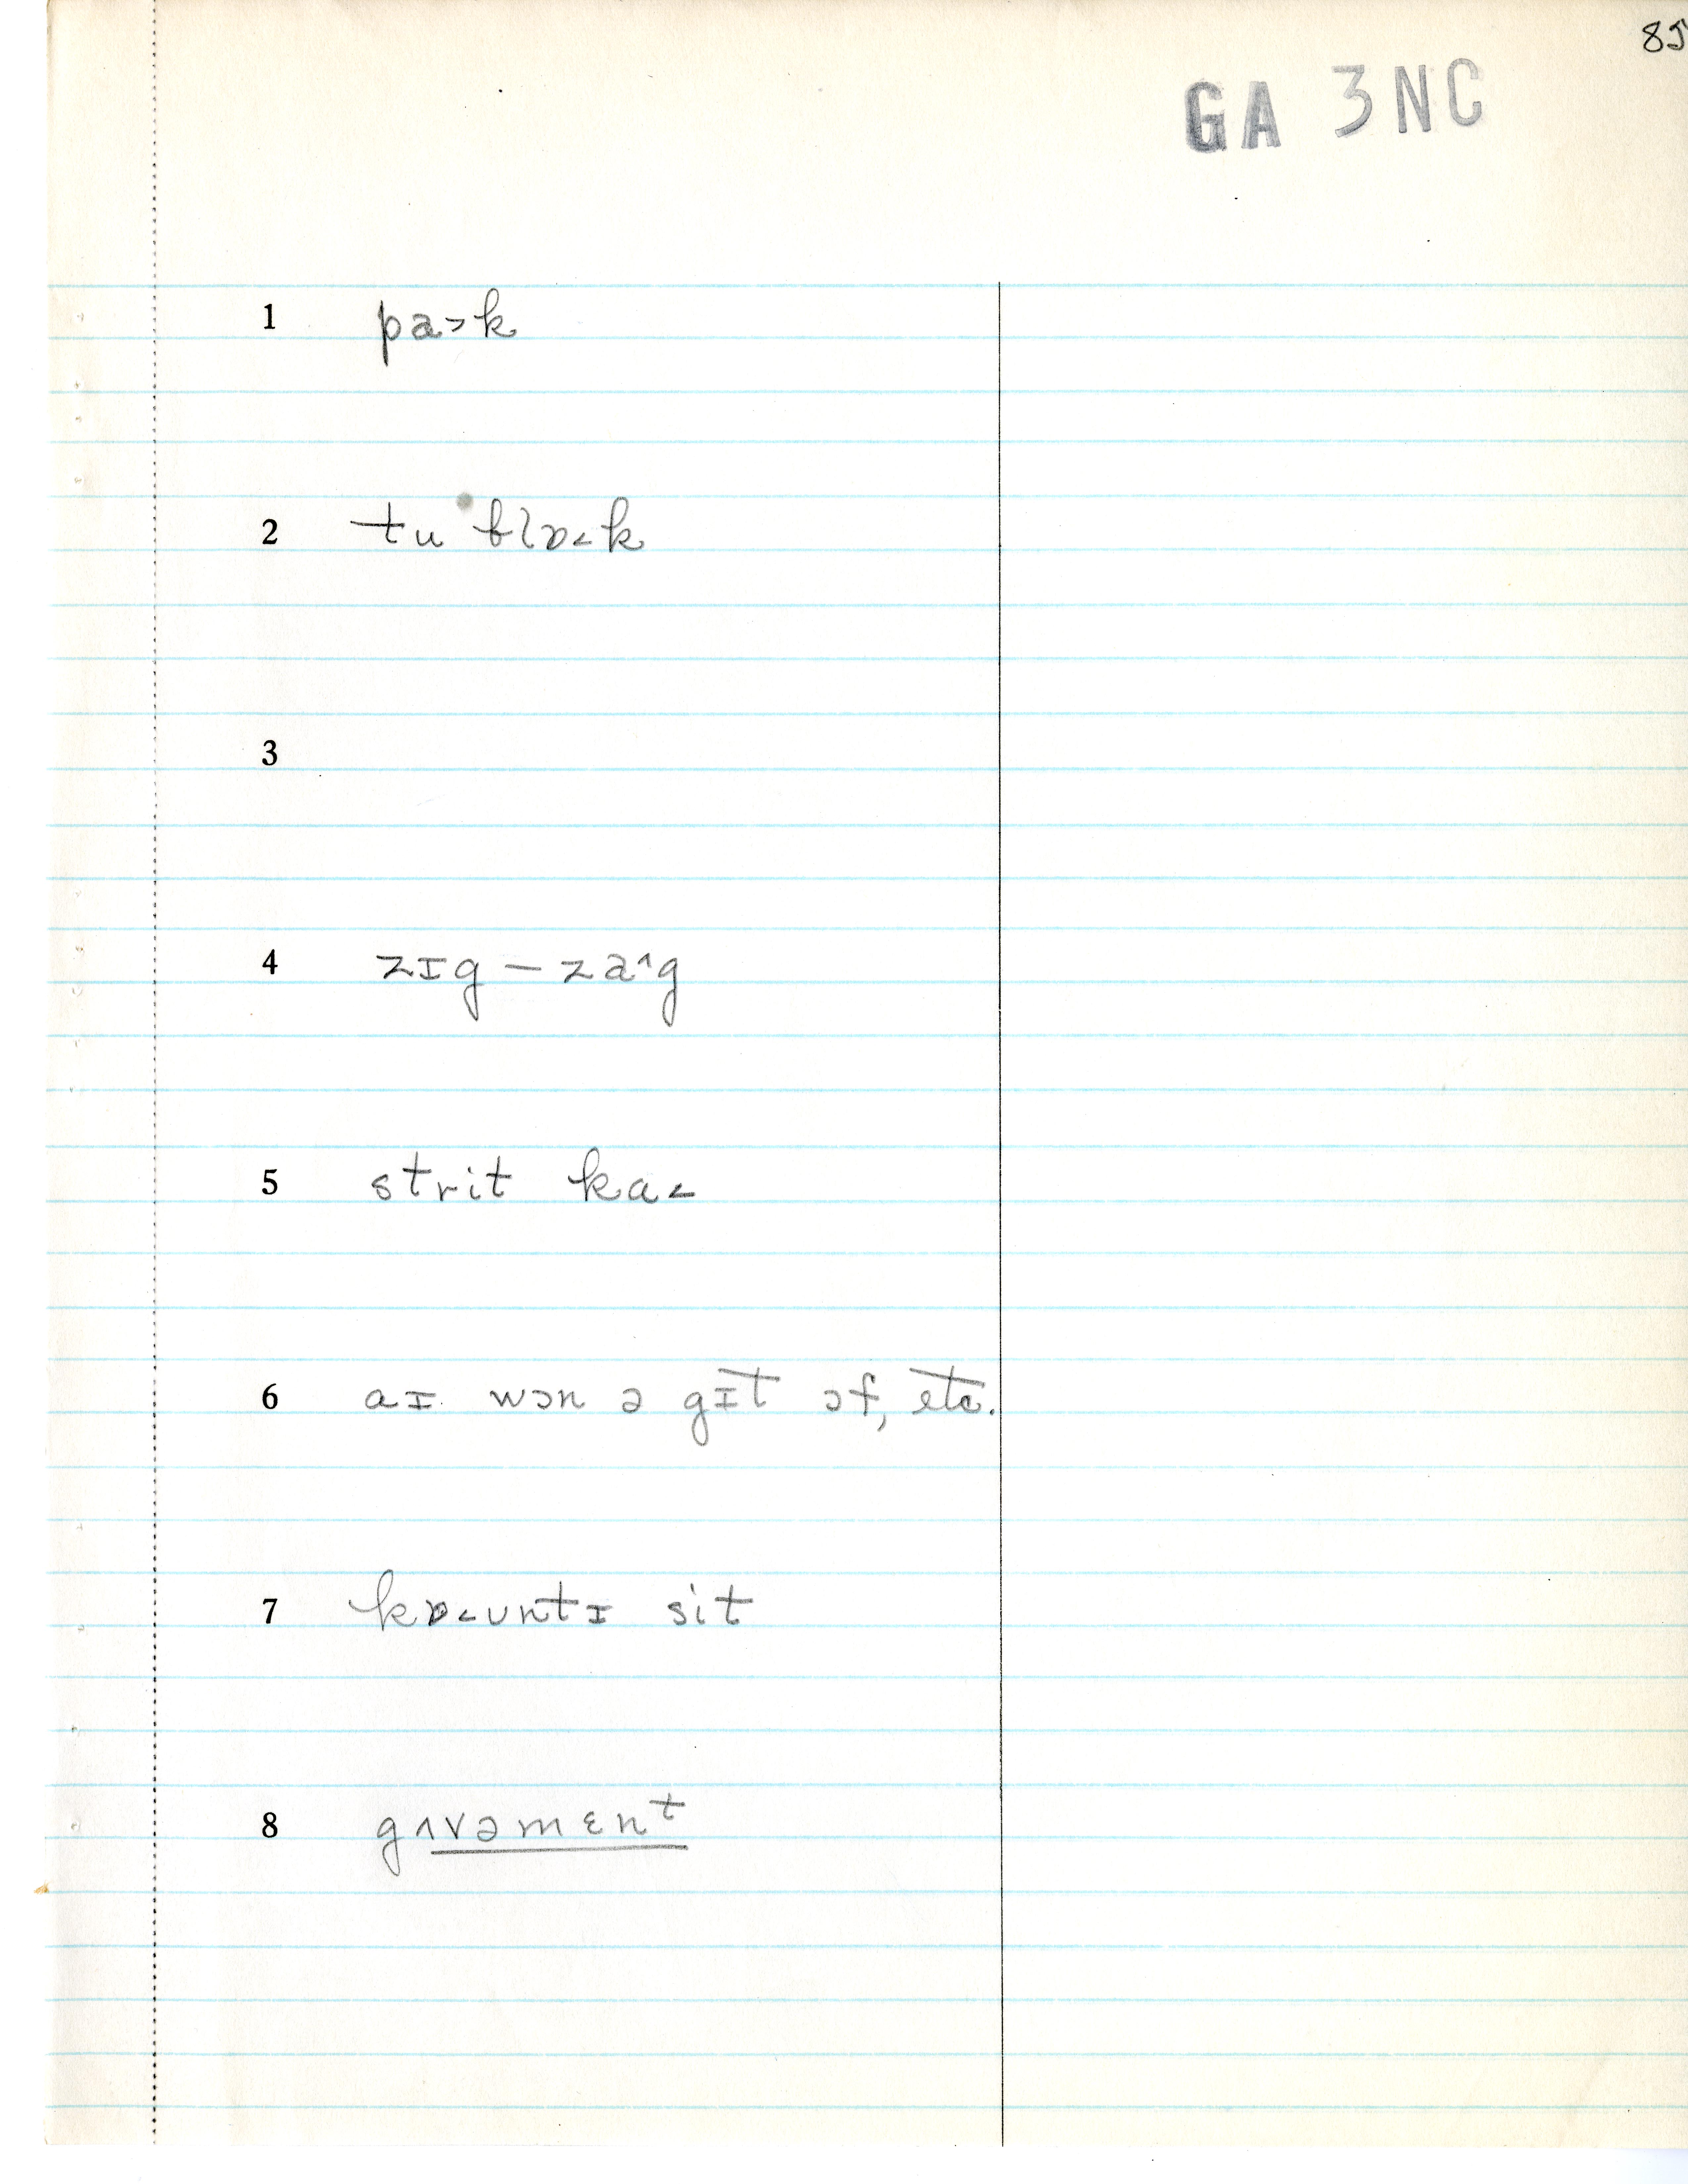 85
GA 3NC
1 pa˃k
2 tu blɒ˂k
3
4 zɪg – za^g
5 strit ka˂
6 aɪ wɔn ə gɪt ɔf, etc.
7 kɒ˂ʊntɪ sit
8 gʌvəmɛnᵗ